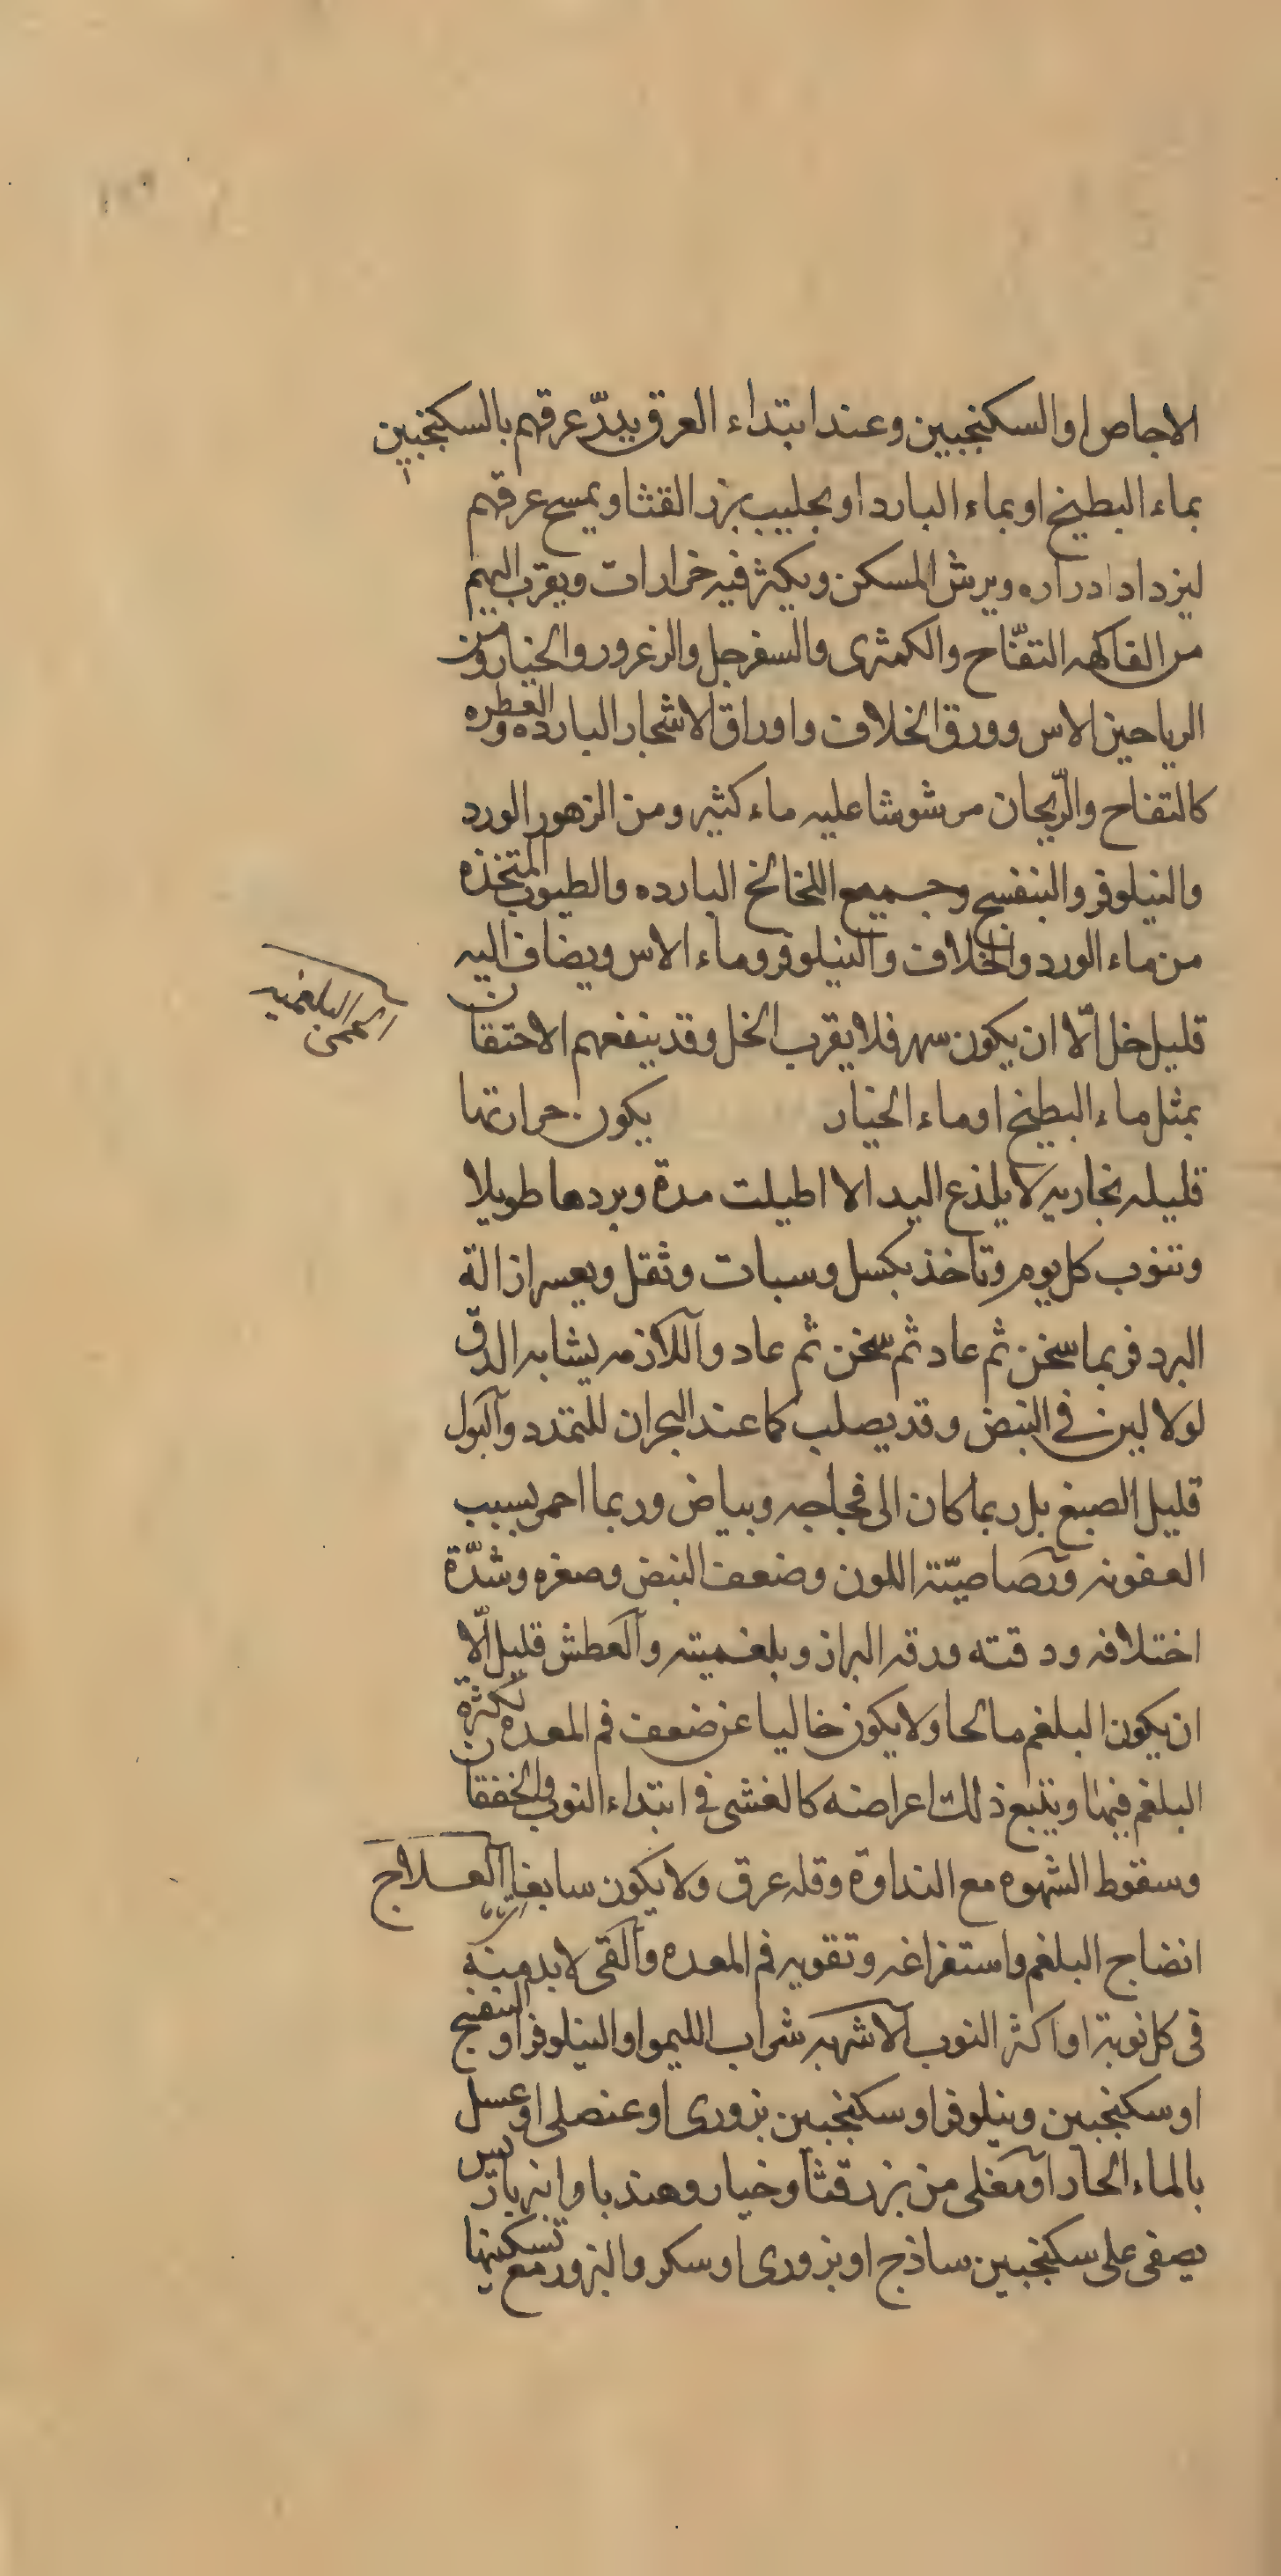 الاجاص او السكنجبين وعند ابتداء العرق يدرّ عرقهم بالسكنجبين
بماء البطيخ او بماء البارد او بحليب بزر القثا ويمسح عرقهم
ليزداد ادراره ويرش المسكن ويكثر فيه خرارات ويقرب اليهم
من الفاكهه التفّاح والكمثرى والسفرجل والزعرور والخيار ومن
الرياحين الاس وورق الخلاف واوراق الاشجار البارده العطره
كالتفاح والرّيحان مرشوشا عليه ماء كثير ومن الزهور الورد
والنيلوفر والبنفسج وجميع اللخالخ البارده والطيوب المتخذه
من ماء الورد والخلاف والنيلوفر وماء الاس ويضاف اليه
قليل خل الّا ان يكون سهر فلا يقرب الخل وقد ينفعهم الاحتقان
الحمى البلغميه
بمثل ماء البطيخ او ماء الخيار يكون حرارتها
قليله بخاريه لا يلذع اليد الا اطيلت مدة وبردها طويلا
وتنوب كل يوم وتاخذ بكسل وسبات وثقل ويعسر ازالة
البرد فربما سخن ثم عاد ثم سخن ثم عاد واللازمه يشابه الدق
لولا لين في النبض وقد يصلب كما عند البحران للتمدد والبول
قليل الصبغ بل ربما كان الى فجاجه وبياض وربما احمر بسبب
العفونه ورصاصيّة اللون وضعف النبض وصغره وشدّة
اختلافه ودقته ورقه البراز وبلغميته والعطش قليل الّا
ان يكون البلغم مالحا ولا يكون خاليا عن ضعف فم المعده لكثرة
البلغم فيها ويتبع ذلك اعراضه كالغشى في ابتداء النوب والخفقان
وسقوط الشهوه مع النداوة وقله عرق ولا يكون سابغا العلاج
انضاج البلغم واستفراغه وتقويه فم المعده والقى لابد منه
فى كل نوبة او اكثر النوب الاشربه شراب الليمو او النيلوفر او البنفسج
او سكنجبين ونيلوفر او سكنجبين بزورى او عنصلى او عسل
بالماء الحار او مغلى من بزر قثا وخيار وهندبا وانبرباريس
يصفى على سكنجبين ساذج او بزورى او سكر والبزور مع تسكينها